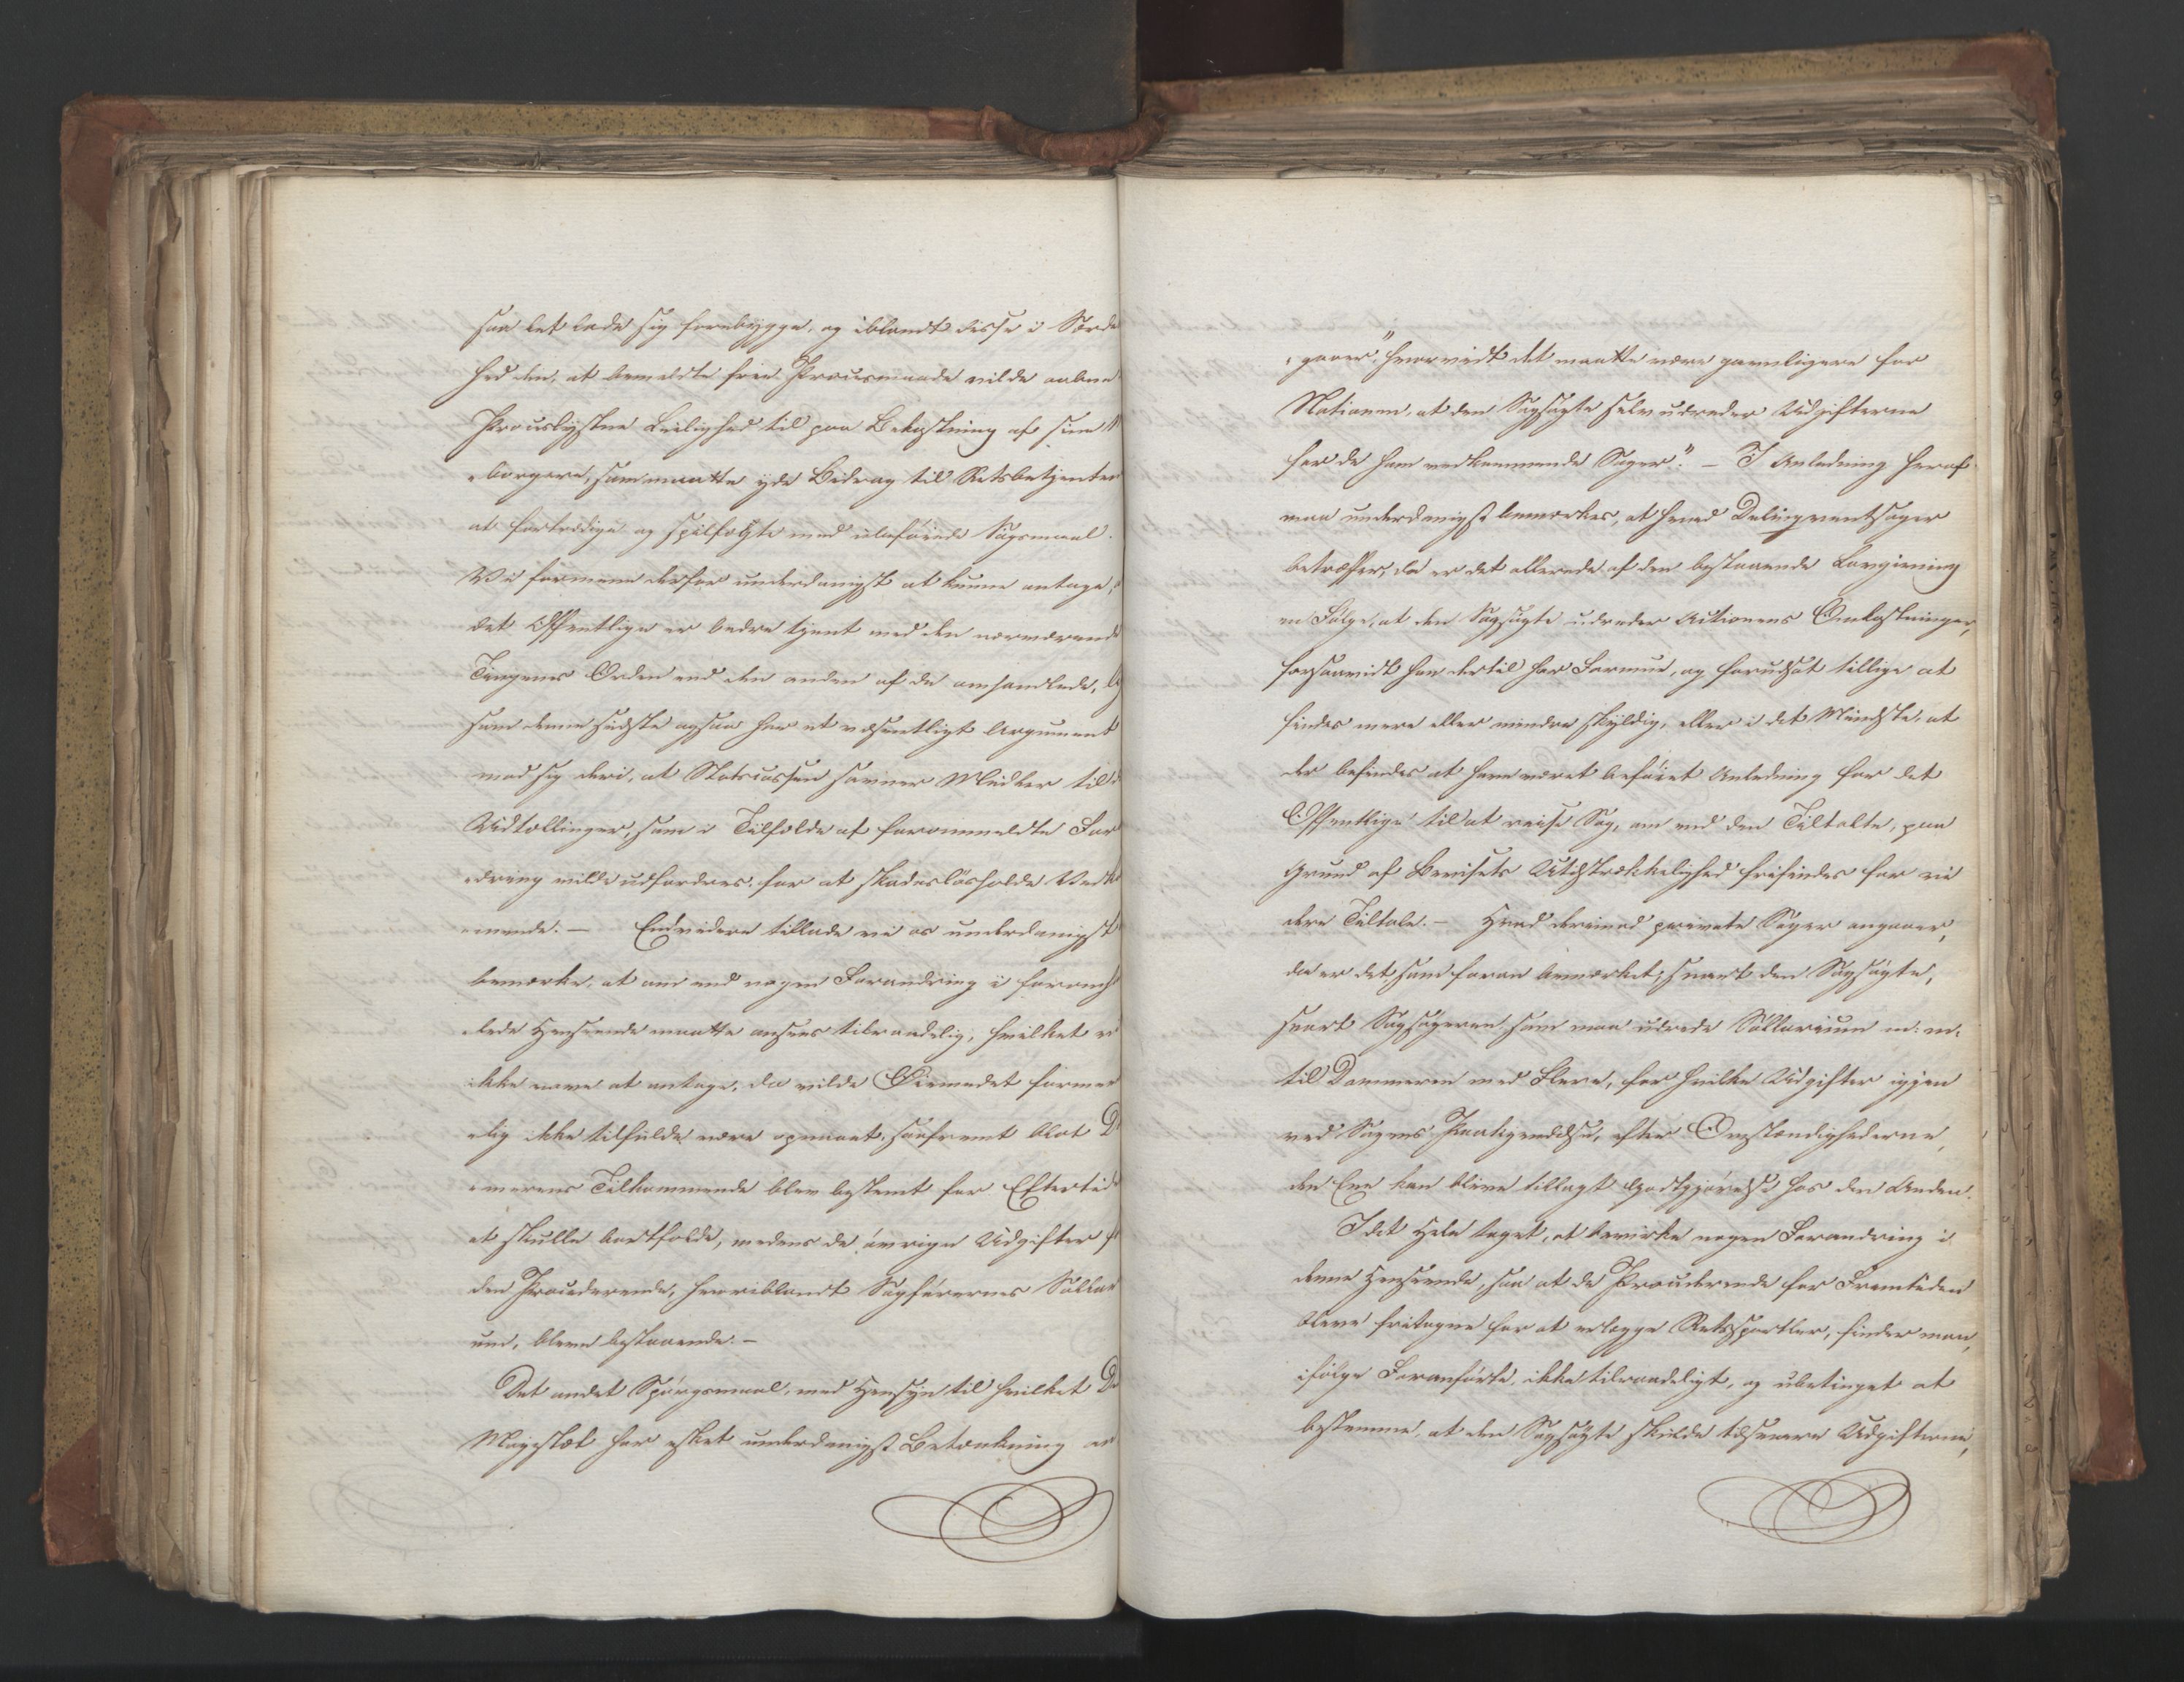 saa let lade sig forebygge, og iblandt disse i Særde
hed den, at bemeldte frie Procesmaade vilde aabne
Proceslystne Leilighed til paa Bekostning af sine M
-borgere, som maatte yde Bidrag til Retsbetjenter
at fortrædige og spilfægte med ubeføiede Søgsmaal.
Vi formene derfor underdanigst at kunne antage,
det Offentlige er bedre tjent med den nærværende
Tingenes Orden end den anden af de omhandlede, li
som denne sidste ogsaa har et væsentligt Argument
mod sig deri, at Statscassen savner Midler til d
Udtællinger, som i Tilfælde af forommeldte For
-dring vilde udfordres for at skadesløsholde Vedk
-mende. — Endvidere tillade vi os underdanigst
bemærke, at om end nogen Forandring i forom
-lede Henseende maatte ansees tilraadelig, hvilket vi
ikke vove at antage, da vilde Øiemedet formee
-lig ikke tilfulde være opnaaet, saafremt blot D
-merens Tilkommende blev bestemt for Eftertid
at skulle bortfalde, medens de øvrige Udgifter f
den Procederende, hvoriblandt Sagførernes Sallar
um, bleve bestaaende. —
Det andet Spørgsmaal, med Hensyn til hvilket D
Majestæt har æsket underdanigst Betænkning er
"gaaer", hvorvidt det maatte være gavnligere for
Nationen, at den Sagsøgte selv udreder Udgifterne
for de ham vedkommende Sager". — I Anledning heraf
maa underdanigst bemærkes, at hvad Delinqventsager
betræffer, da er det allerede af den bestaaende Lovgivning
en Følge, at den Sagsøgte udreder Actionens Omkostninger,
forsaavidt han dertil har Formue, og forudsat tillige at
findes mere eller mindre skyldig, eller i det Mindste, at
der befindes at have været beføiet Anledning for det
Offentlige til at reise Sag, om end den Tiltalte, paa
Grund af Bevisets Utilstrækkelighed frifindes for vi
dere Tiltale. — Hvad derimod private Sager angaaer,
da er det, som foran bemærket, snart den Sagsøgte,
snart Sagsøgeren som maa udrede Sallarium m: m:
til Dommeren med Flere, for hvilke Udgifter igjen
ved Sagens Paakjendelse, efter Omstændighederne,
den Ene kan blive tillagt Godtgjørelse hos den Anden.
I det Hele taget, at bevirke nogen Forandring i
denne Henseende, saa at de Procederende for Fremtiden
bleve fritagne for at erlægge Retssportler, finder man,
ifølge Foranførte, ikke tilraadeligt, og ubetinget at
bestemme, at den Sagsøgte skulde tilsvare Udgifterne,